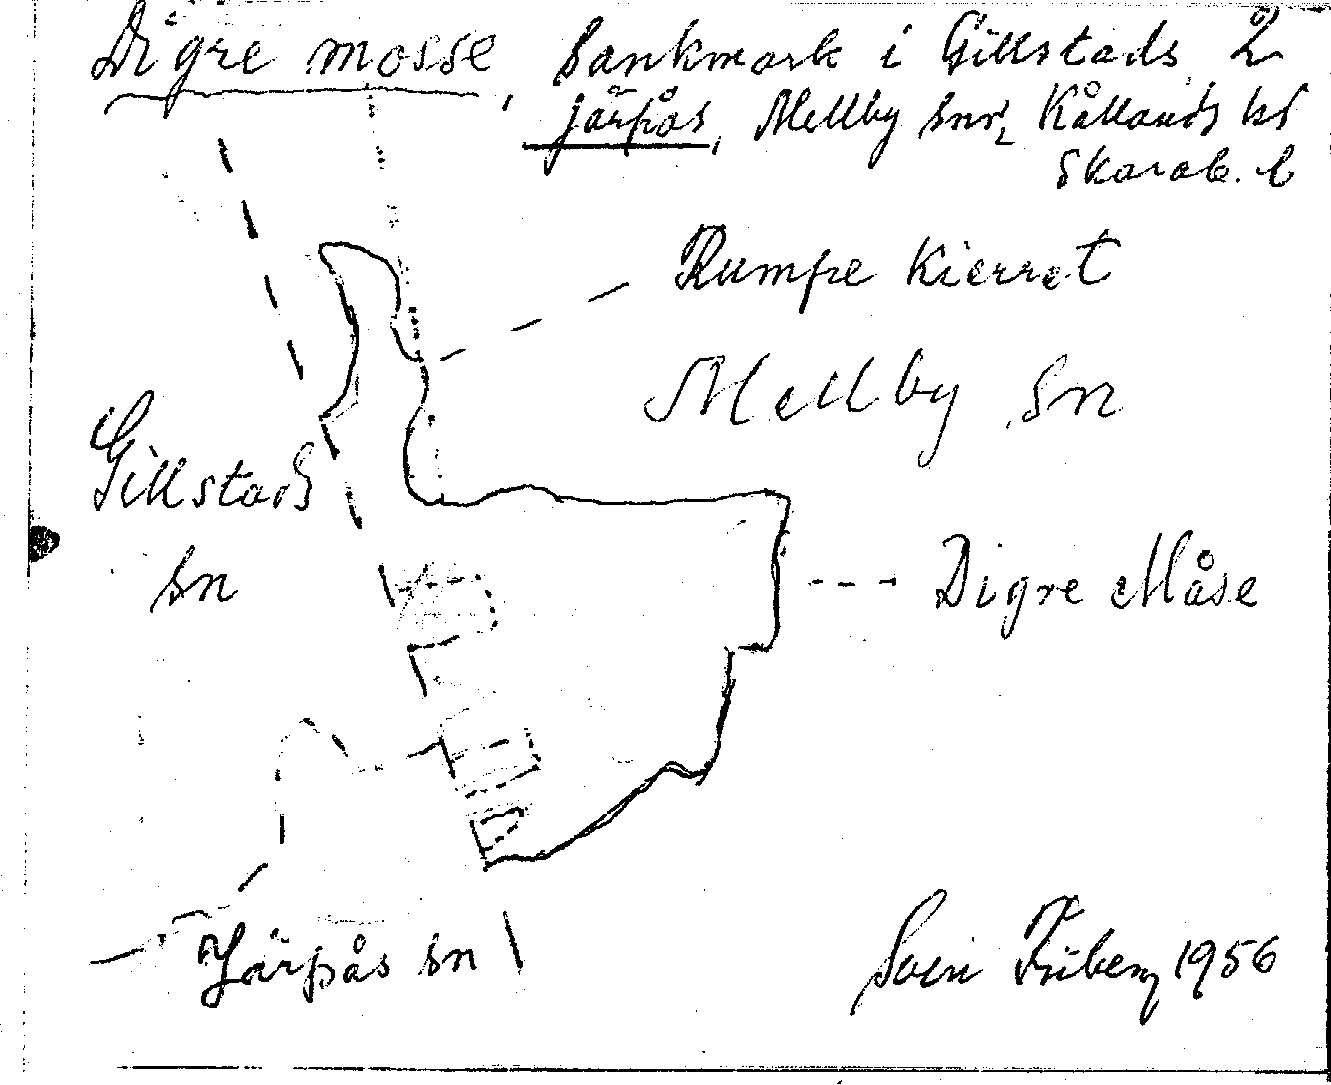 Digre mosse, Sankmark i Gillstads 2
Järpås, Mellby snr, Kållands hd
Skarab. l
Rumpe kierret
Mellby sn
Gillstads
sn
Digre Måse
Järpås sn
Sven Friberg 1956